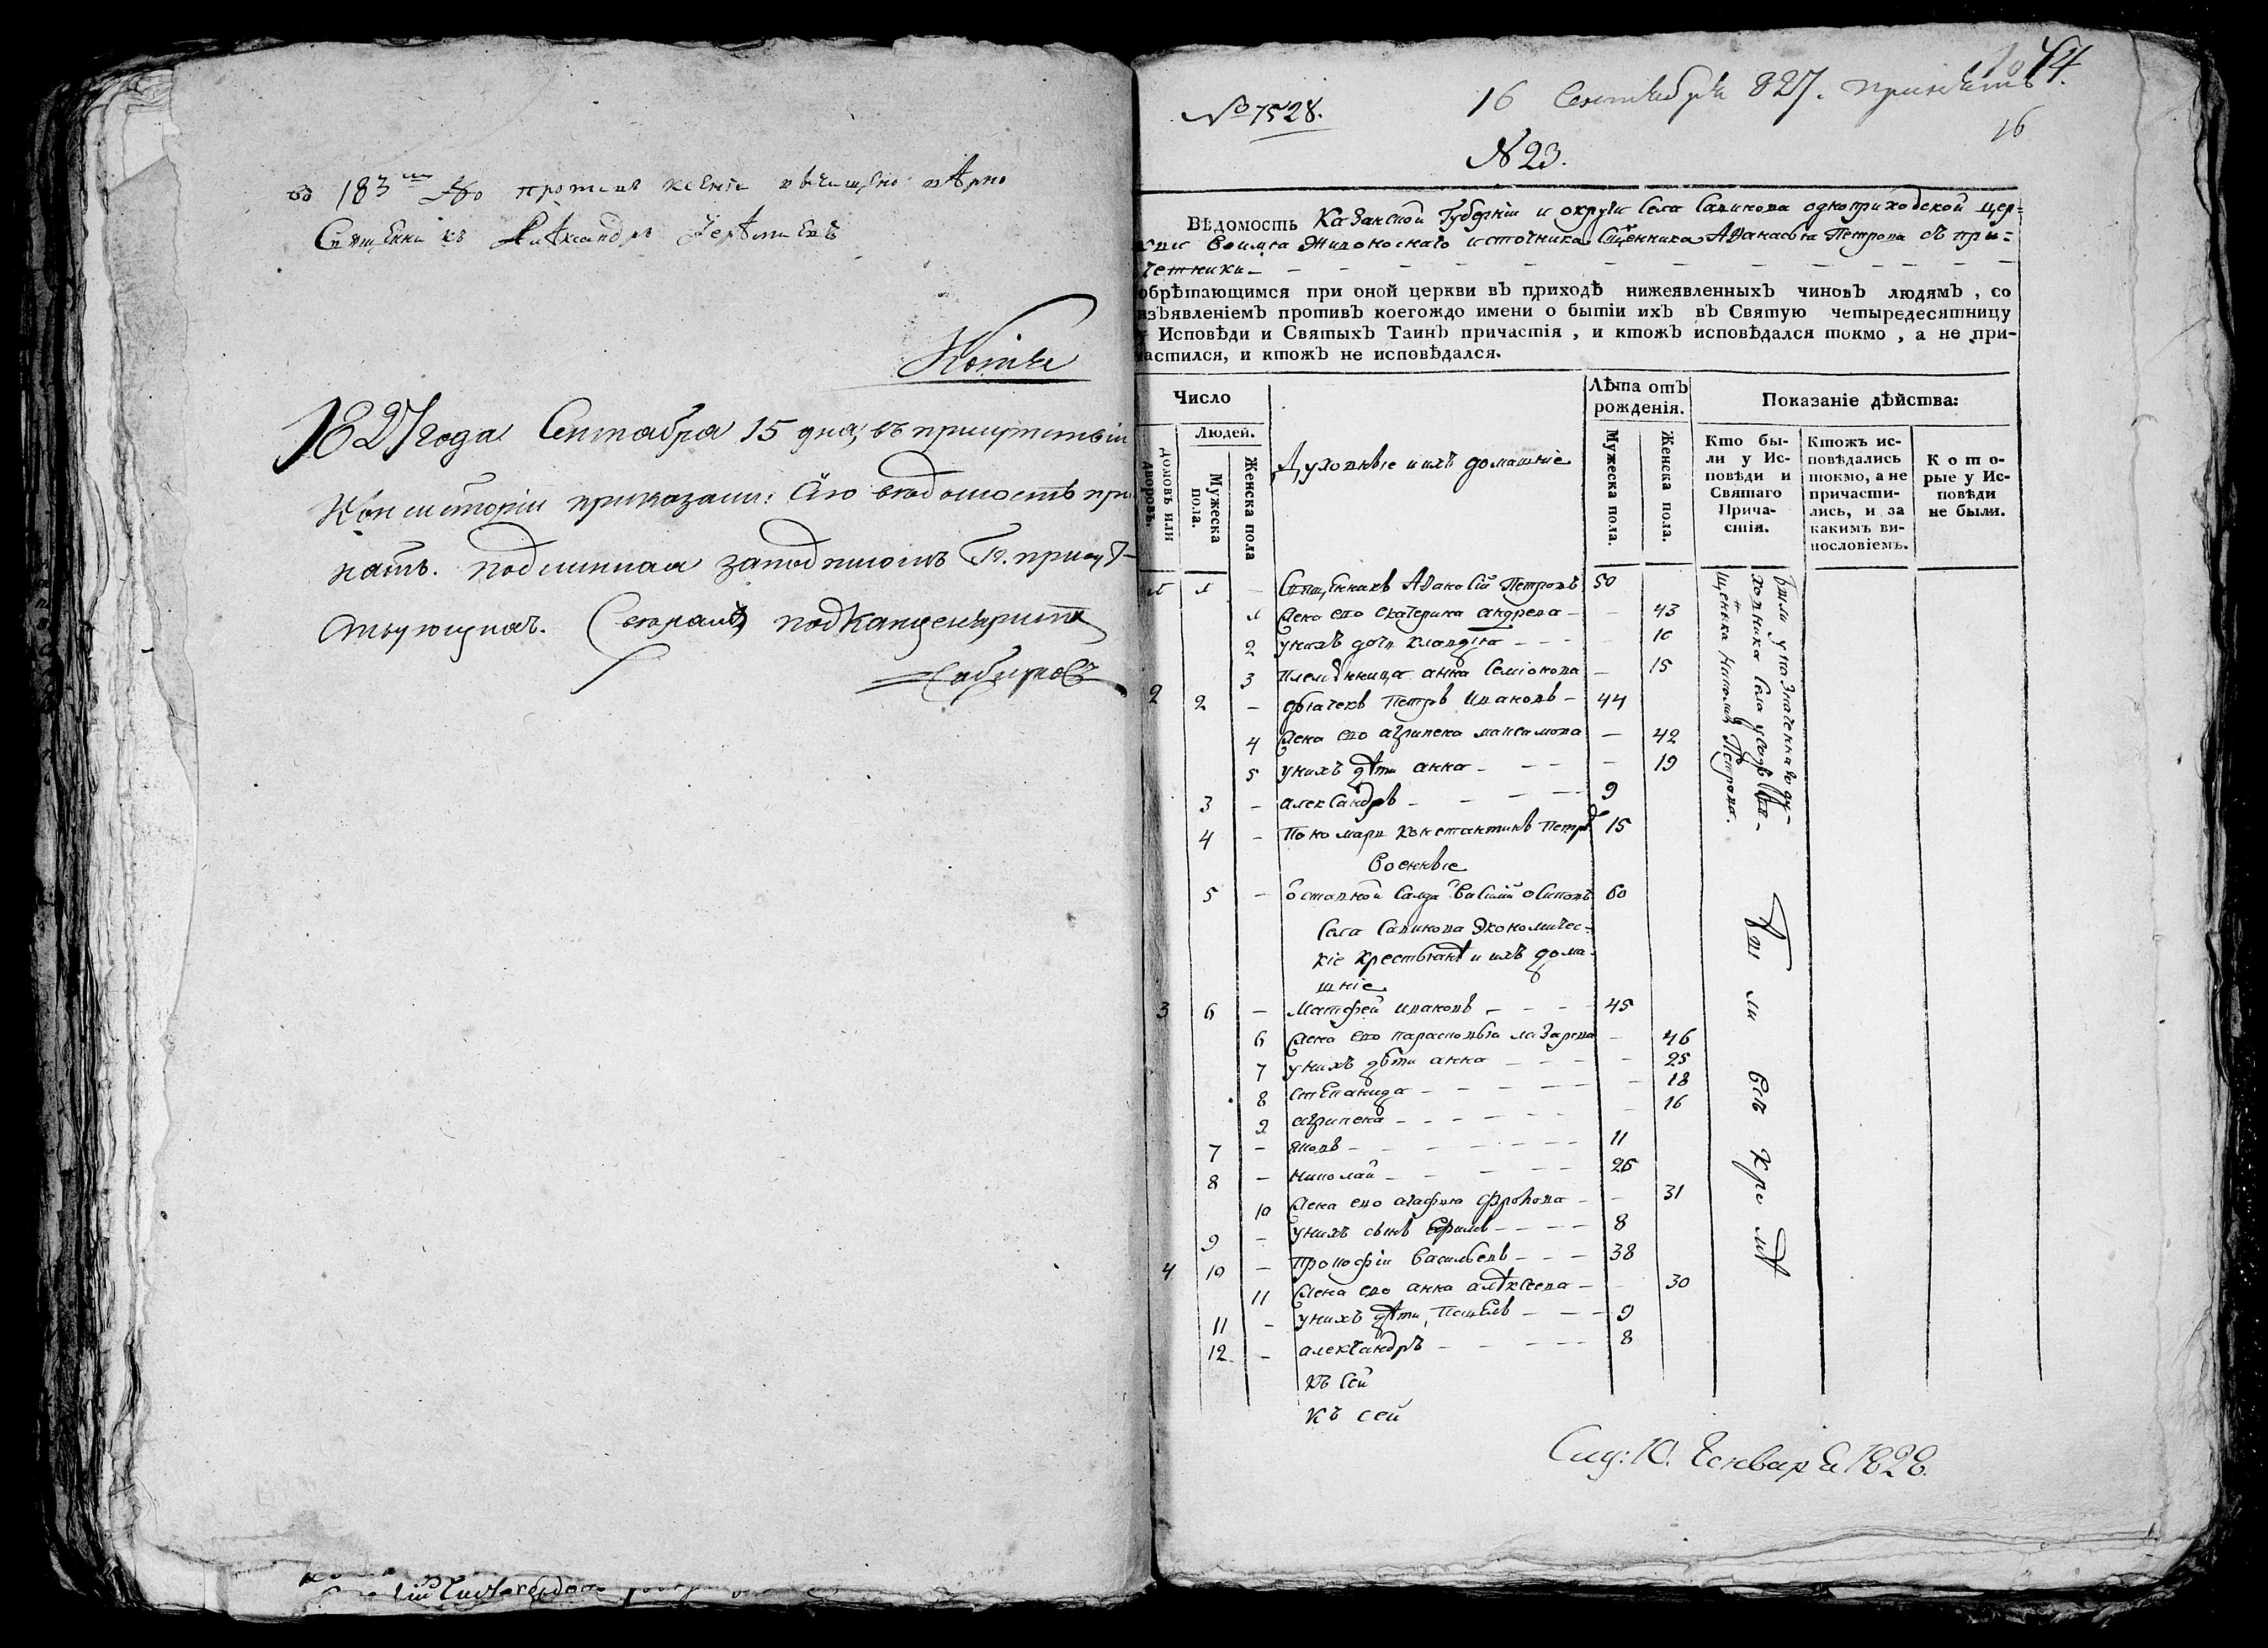 во 183
Священникъ Александръ
Копія
1827 года Сентября 15 дня, въ присутствіи
Консисторіи приказали: Сію вѣдомость при
нять. Подлинная заподписомъ Гг. присут-
ствующихъ. подканцеляристъ
№ 1528.
16 Сентября 827. принять
16
N 23.
Вѣдомость Казанской Губерніи и округи Села Савинова одноприходской цер=
кви Воимя Живоноснаго источника Сщенника Аѳанасья Петрова съ при=
четники
обрѣтающимся при оной церкви въ приходѣ нижеявленныхъ чиновъ людямъ, со
изъявленіемъ противъ коегождо имени о бытіи ихъ въ Святую четыредесятницу
у Исповѣди и Святыхъ Таинъ причастія, и ктожъ исповѣдался токмо, а не при-
частился, и ктожъ не исповѣдался.
Число
Людей.
домовъ или дворовъ.
Мужеска пола.
Женска пола
Духовные и ихъ домашніе
Лѣта отъ рожденія.
Мужеска пола.
Женска пола.
Показаніе дѣйства:
Кто бы-
ли у Ис-
повѣди и
Святаго
Прича-
стія.
Ктожъ ис-
повѣдались
токмо, а не
причасти-
лись, и за
какимъ ви-
нословіемъ.
Кото-
рые у Ис-
повѣди
не были.
1 1 – Священникъ Аѳанасій Петровъ 50
1 Жена ево екатерина андрева – 43
2 унихъ дочь клавдіа – 10
3 племѣнница анна Семіонова – 15
2 2 – дьячекъ Петръ Ивановъ – 44
4 Жена ево агрипена максимова – 42
5 унихъ дѣти анна – 19
3 – александръ – 9
4 – Пономарь константинъ Петровъ 15
Военные
5 – отставной Салда Василій Осиповъ 60
Села Савинова Экономичес-
кіе крестьянѣ и ихъ дома-
шніе
3 6 – Матфей ивановъ – 45
6 Жена ево парасковья лазарева – 46
7 унихъ дѣти анна – 25
8 стѣпанида – 18
9 агрипена – 16
7 – яковъ – 11
8 – николай – 25
10 Жена ево агафия фролова – 31
9 – унихъ сынъ Ефимъ – 8
4 10 – прокофіи Васильевъ – 38
11 Жена ево анна алѣксеева – 30
11 – унихъ дѣти, Павелъ – 9
12 – александръ – 8
Были у назначеннаго ду-
ховника Села
щенника Николая Петрова.
Бы ли всѣ кро мѣ
къ сей
къ сей
Генваря 1828.